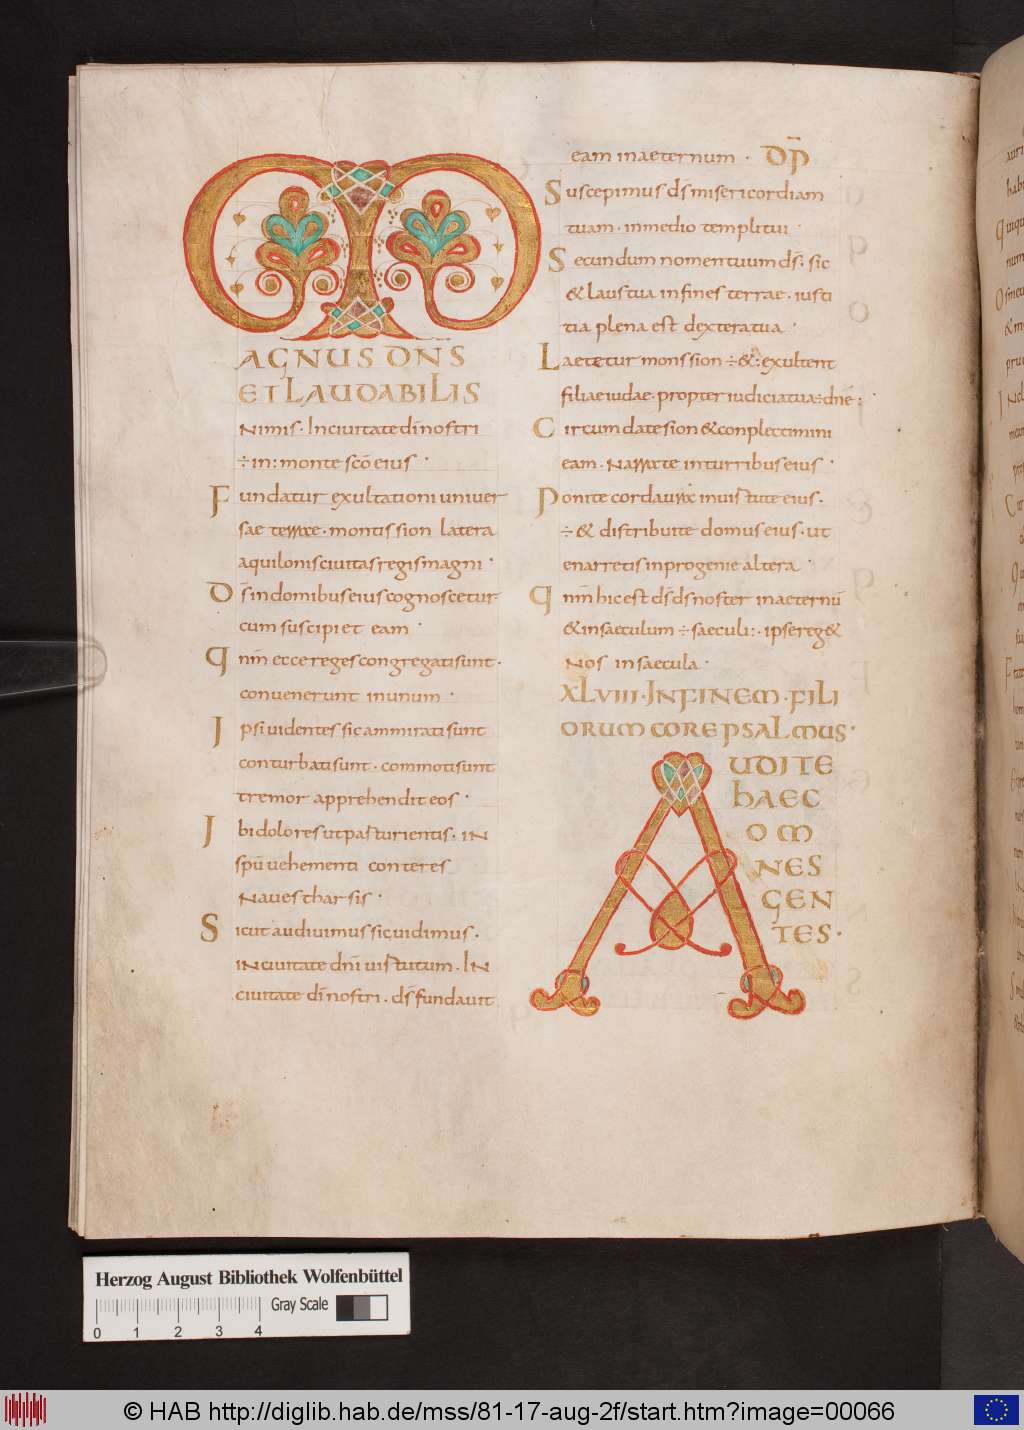 MAGNUS DN̄S
ET LAUDABILIS
Nimis. In ciuitate dīnostri
÷in: monte scō eius.
Fundatur exultationi univer
sae terrae. montis sion latera
aquilonis ciuitas regis magni.
Ds̄ in domibus eius cognoscetur
cum suscipiet eam.
Qnīm ecce reges congregati sunt.
conuenerunt inunum.
Ipsi uidentes sic ammirati sunt
conturbati sunt. commoti sunt
tremor apprehendit eos.
Ibi dolores ut parturientis. in
spū uehementi conteres
Naues tharsis.
Sicut audiuimus sic uidimus.
in ciuitate dnī uirtutum. In
ciuitate dī nostri. ds̄ fundauit
eam in aeternum. DP̄
Suscepimus ds̄ misericordiam
tuam. in medio templi tui.
Secundum nomen tuum ds̄: sic
& laus tua in fines terrae. iusti
tia plena est dextera tua.
Laetetur mons sion ÷&: exultent
filiae iudae. propter iudicia tua÷dnē:
Circumdate sion & conplectimini
eam. Narrate in turribus eius.
Ponite corda uṙa in uirtute eius.
÷& distribuite domus eius. ut
enarretis in progenie altera.
Qnīm hic est ds̄ ds̄ noster in aeternū
& in saeculum ÷saeculi:. ipse reg&
Nos in saecula.
XLVIII. IN FINEM. FILI
ORUM CORE PSALMUS.
AUDITE
HAEC
OM
NES
GEN
TES.
Herzog August Bibliothek Wolfenbüttel
Gray Scale
0 1 2 3 4
© HAB http://diglib.hab.de/mss/81-17-aug-2f/start.htm?image=00066